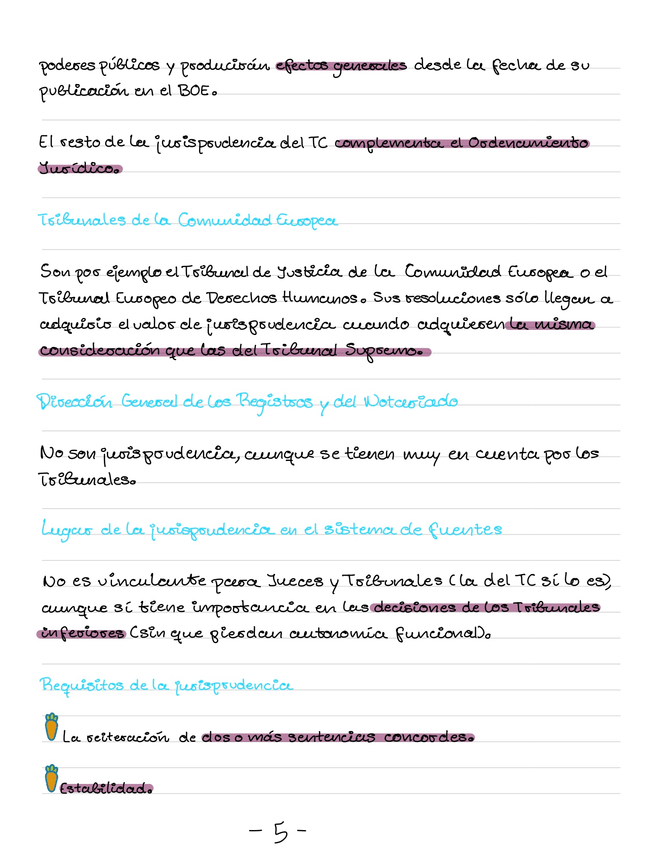 poderes públicos y producirán efectos generales desde la fecha de su
publicación en el BOE.
El resto de la jurisprudencia del TC complementa el Ordenamiento
Jurídico.
Tribunales de la Comunidad Europea
Son por ejemplo el Tribunal de Justicia de la Comunidad Europea o el
Tribunal Europeo de Derechos Humanos. Sus resoluciones sólo llegan a
adquirir el valor de jurisprudencia cuando adquieren la misma
consideración que las del Tribunal Supremo.
Dirección General de los Registros y del Notariado
No son jurisprudencia, aunque se tienen muy en cuenta por los
Tribunales.
Lugar de la jurisprudencia en el sistema de fuentes
No es vinculante para Jueces y Tribunales (la del TC sí lo es),
aunque sí tiene importancia en las decisiones de los Tribunales
inferiores (sin que pierdan autonomía funcional).
Requisitos de la jurisprudencia
La reiteración de dos o más sentencias concordes.
Estabilidad.
- 5 -